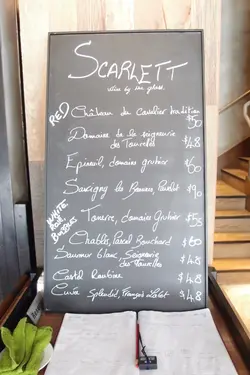 SCARLETT
wine by the glass.
RED
Château du cavalier tradition
$50
Domaine de la seigneurie
des Tourelles $48
Epineuil, domaine gruhier $60
Savigny les Beaune, $90
WHITE
ROSÉ
BUBBLES
Tonerre, domaine Gruhier $55
Chablis, Pascal Bouchard $60
Saumur blanc, Seigneurie
des Tourelles $48
Castel Roubine $48
Cuvée Splendid, François $48